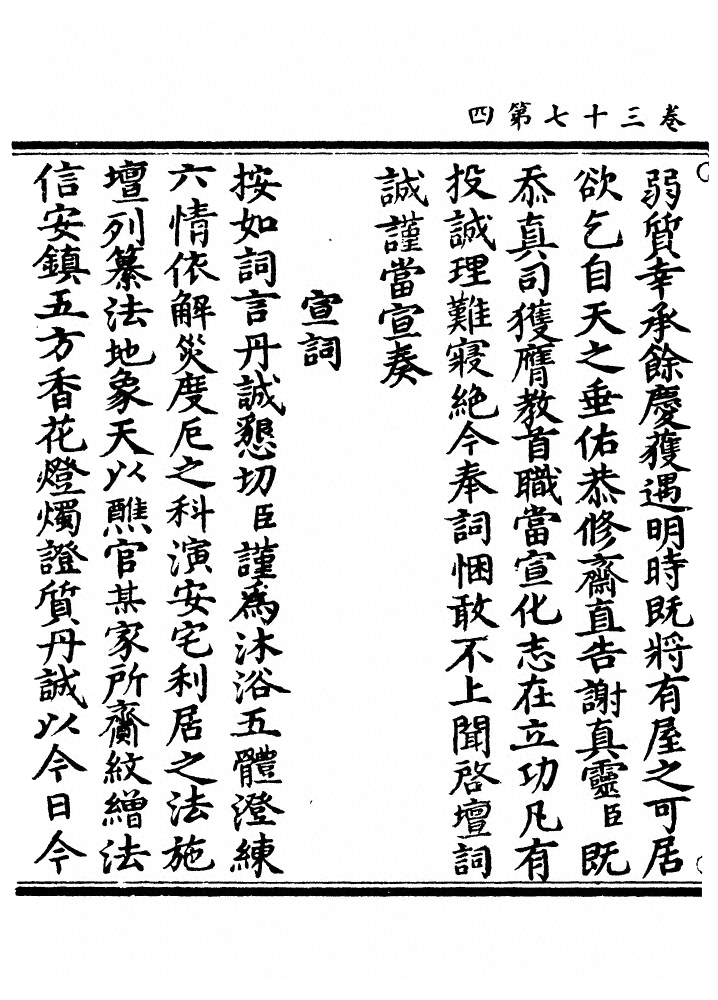 卷三十七第四
弱質幸承餘慶獲遇明時既將有屋之可居
欲乞自天之垂佑恭修齋直告謝真靈臣既
忝真司獲膺教首職當宣化志在立功凡有
投誠理難寢絶今奉詞悃敢不上聞啓壇詞
誠謹當宣奏
宣詞
按如詞言丹誠懇切臣謹爲沐浴五體澄練
六情依解災度厄之科演安宅利居之法施
壇列纂法地象天以醮官某家所齎紋繒法
信安鎮五方香花燈燭證質丹誠以今日今